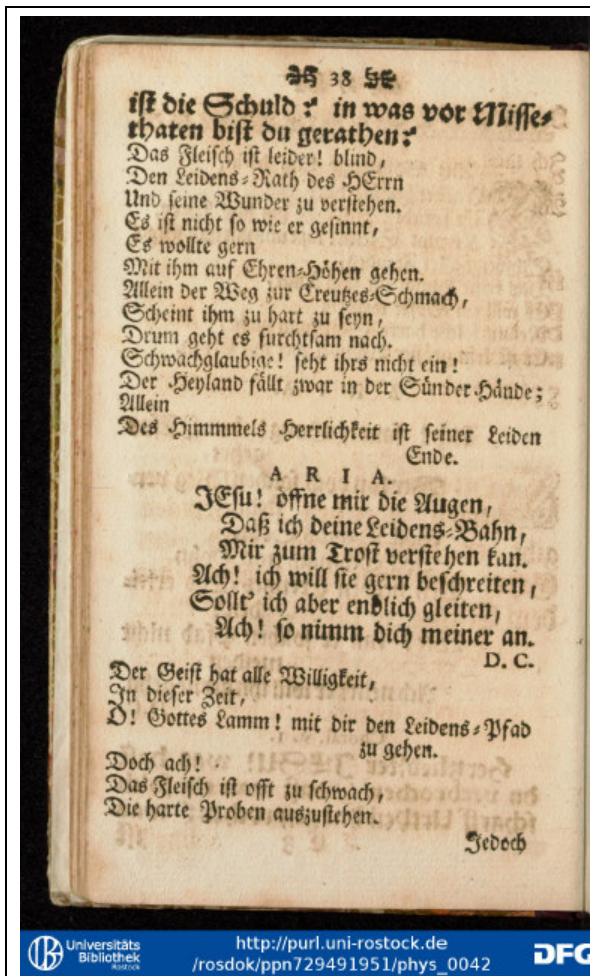 38
ist die Schuld? in was vor Misse-
thaten bist du gerathen?
Das Fleisch ist leider! blind,
Den Leidens-Rath des HErrn
Und seine Wunder zu verstehen.
Es ist nicht so wie er gesinnt,
Es wollte gern
Mit ihm auf Ehren-Höhen gehen.
Allein der Weg zur Creutzes-Schmach,
Scheint ihm zu hart zu seyn,
Drum geht es furchtsam nach.
Schwachglaubige! seht ihrs nicht ein!
Der Heyland fällt zwar in der Sünder-Hände;
Allein
Des Himmmels Herrlichkeit ist seiner Leiden
Ende.
ARIA.
JEsu! öffne mir die Augen,
Daß ich deine Leidens-Bahn,
Mir zum Trost verstehen kan.
Ach! ich will sie gern beschreiten,
Sollt' ich aber endlich gleiten,
Ach! so nimm dich meiner an.
D. C.
Der Geist hat alle Willigkeit,
In dieser Zeit,
O! Gottes Lamm! mit dir den Leidens-Pfad
zu gehen.
Doch ach!
Das Fleisch ist offt zu schwach,
Die harte Proben auszustehen.
Jedoch
Universitäts
Bibliothek
Rostock
http://purl.uni-rostock.de
/rosdok/ppn729491951/phys_0042
DFG